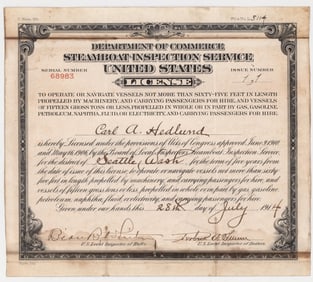 DEPARTMENT OF COMMERCE
STEAMBOAT-INSPECTION SERVICE
SERIAL NUMBER
UNITED STATES
ISSUE NUMBER
68983
LICENSE
TO OPERATE OR NAVIGATE VESSELS NOT MORE THAN SIXTY-FIVE FEET IN LENGTH
PROPELLED BY MACHINERY, AND CARRYING PASSENGERS FOR HIRE, AND VESSELS
OF FIFTEEN GROSS TONS OR LESS, PROPELLED IN WHOLE OR IN PART BY GAS, GASOLINE,
PETROLEUM, NAPHTHA, FLUID, OR ELECTRICITY, AND CARRYING PASSENGERS FOR HIRE.
Carl A. Hedlund
is hereby Licensed under the provisions of Acts of Congress approved
and May 18, 1906, by the Board of Local Inspectors, Steamboat Inspection Service
for the district of Seattle, Wash for the term of five years from
the date of issue of this license, to operate or navigate vessels not more than sixty
five feet in length, propelled by machinery, and carrying passengers for hire, and
vessels of fifteen gross tons or less, propelled in whole or in part by gas, gasoline
petroleum, naphtha, fluid, or electricity, and carrying passengers for hire.
Given under our hands this 28th day of July 1914
U.S. Local Inspector of Hulls.
U.S. Local Inspector of Boilers.